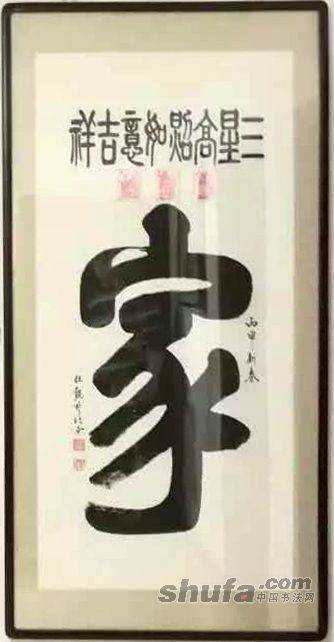 三星高照如意吉祥
家
丙申新春
shufa.com
中国书法网